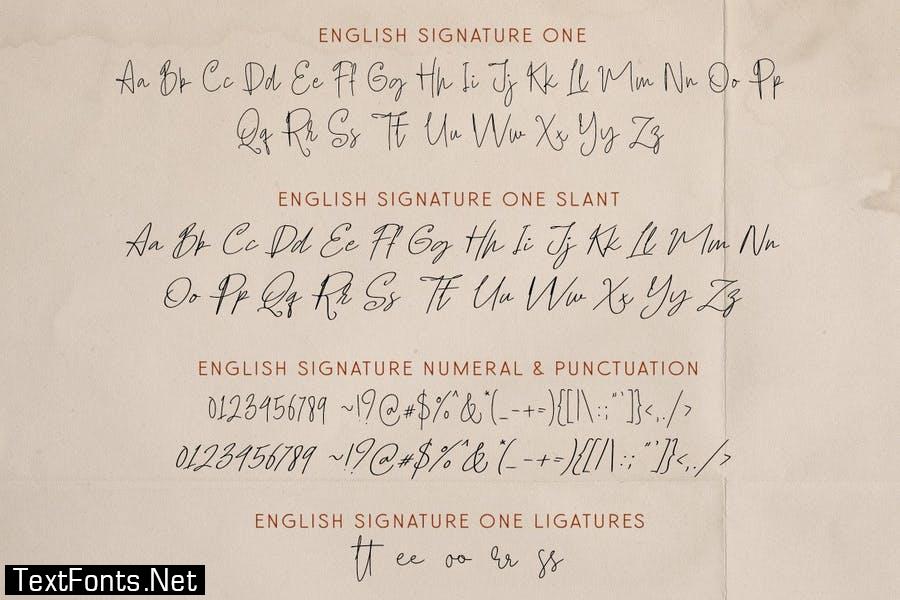 ENGLISH SIGNATURE ONE
Aa Bb Cc Dd Ee Ff Gg Hh Ii Jj Kk Ll Mm Nn Oo Pp
Qq Rr Ss Tt Uu Vv Ww Xx Yy Zz
ENGLISH SIGNATURE ONE SLANT
Aa Bb Cc Dd Ee Ff Gg Hh Ii Jj Kk Ll Mm Nn
Oo Pp Qq Rr Ss Tt Uu Vv Ww Xx Yy Zz
ENGLISH SIGNATURE NUMERAL & PUNCTUATION
0123456789 ~!?@#$%^&*(_-+=){[[|\:;"']]}<,./>
0123456789 ~!?@#$%^&*(_-+=){[[|\:;"']]}<,./>
ENGLISH SIGNATURE ONE LIGATURES
tt ee oo rr ss
TextFonts.Net